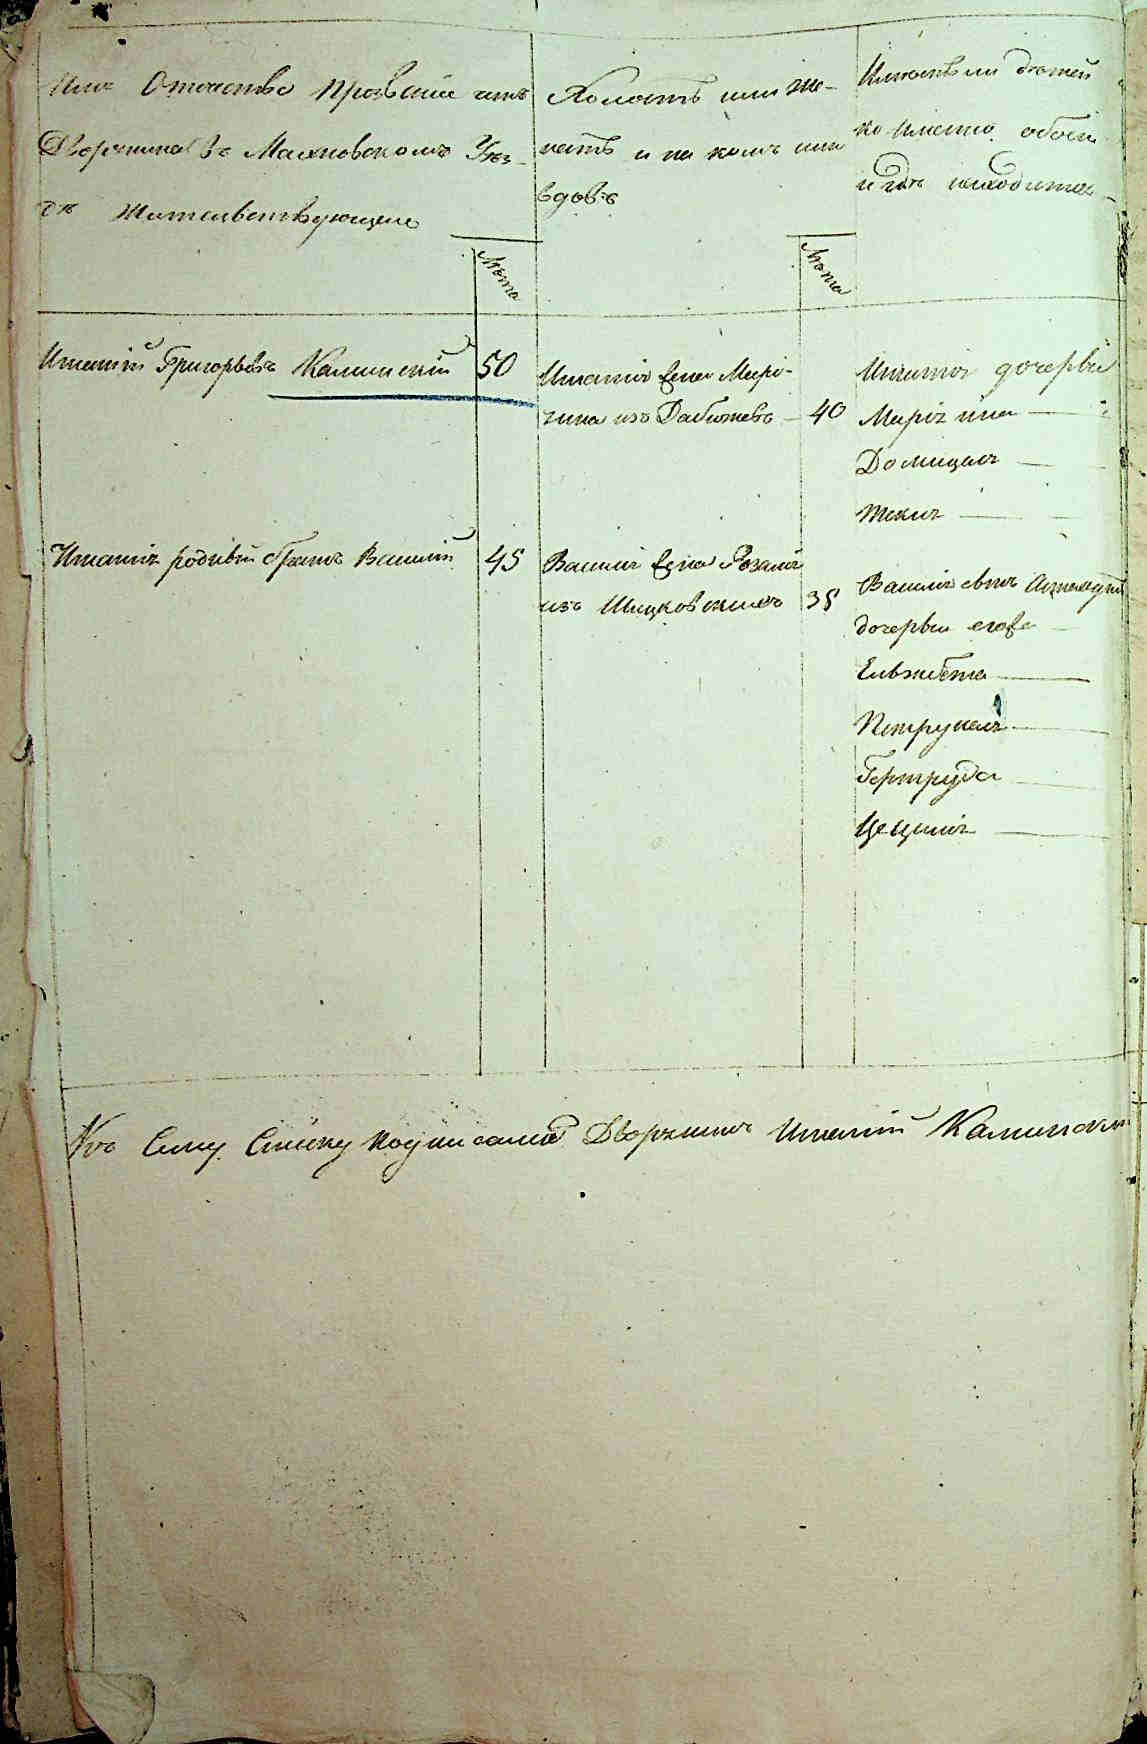 Имя Отчество Прозвание
Дворянина въ Махновскомъ Уѣз-
дѣ жительствующаго
Лѣта
Холостъ или же-
натъ и на комъ или
вдовъ
Лѣта
Имѣетъ ли дѣтей
обоего
и гдѣ находится
Игнатій Григорьевъ Калинскій 50
Игнатія жена Мари-
яна изъ 40
Игнатія дочерьи
Маріяна
Домицеля
Текля
Игнатія родный братъ Василій 45
Василія жена Розалія
изъ Шицковскихъ 35
Василія сынъ
дочерьи его
Елъжбета
Петрунеля
Гертруда
Цецилія
Къ сему списку подписался Дворянинъ Игнатій Калинскій